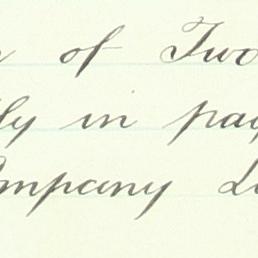 of Two
ly in pay
ompany L